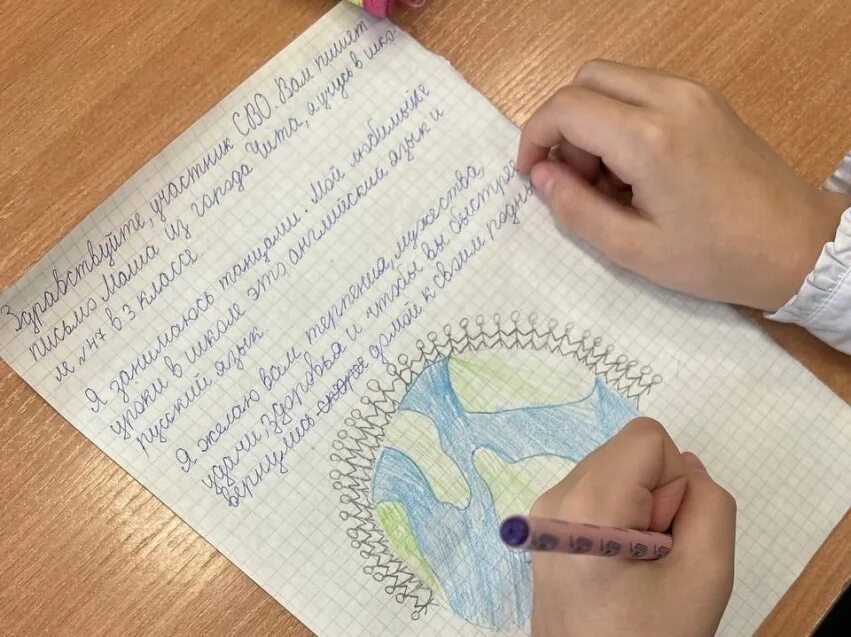 Здравствуйте, участник СВО. Вам пишет
письмо Маша из города Чита, я учусь в шко-
м №47 в 3 классе
Я занимаюсь танцами. Мой любимые
уроки в школе это, английский язык и
русский язык.
Я желаю вам терпения, мужества,
удачи, здоровья и чтобы вы быстрее
вернулись скорее домой к своим родны